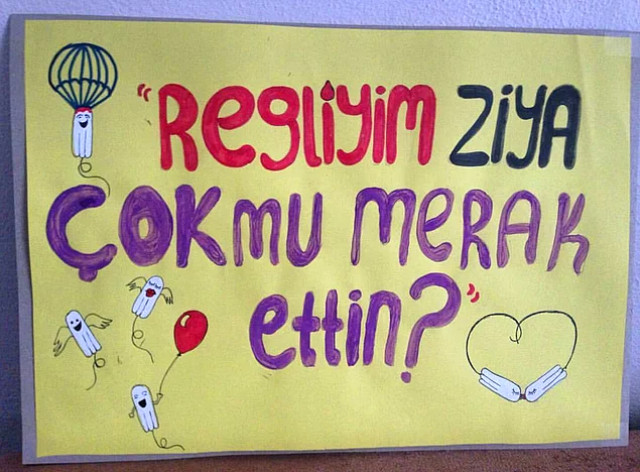 "Regliyim ZiYA
ÇOKMU MeRAK
ettin?"